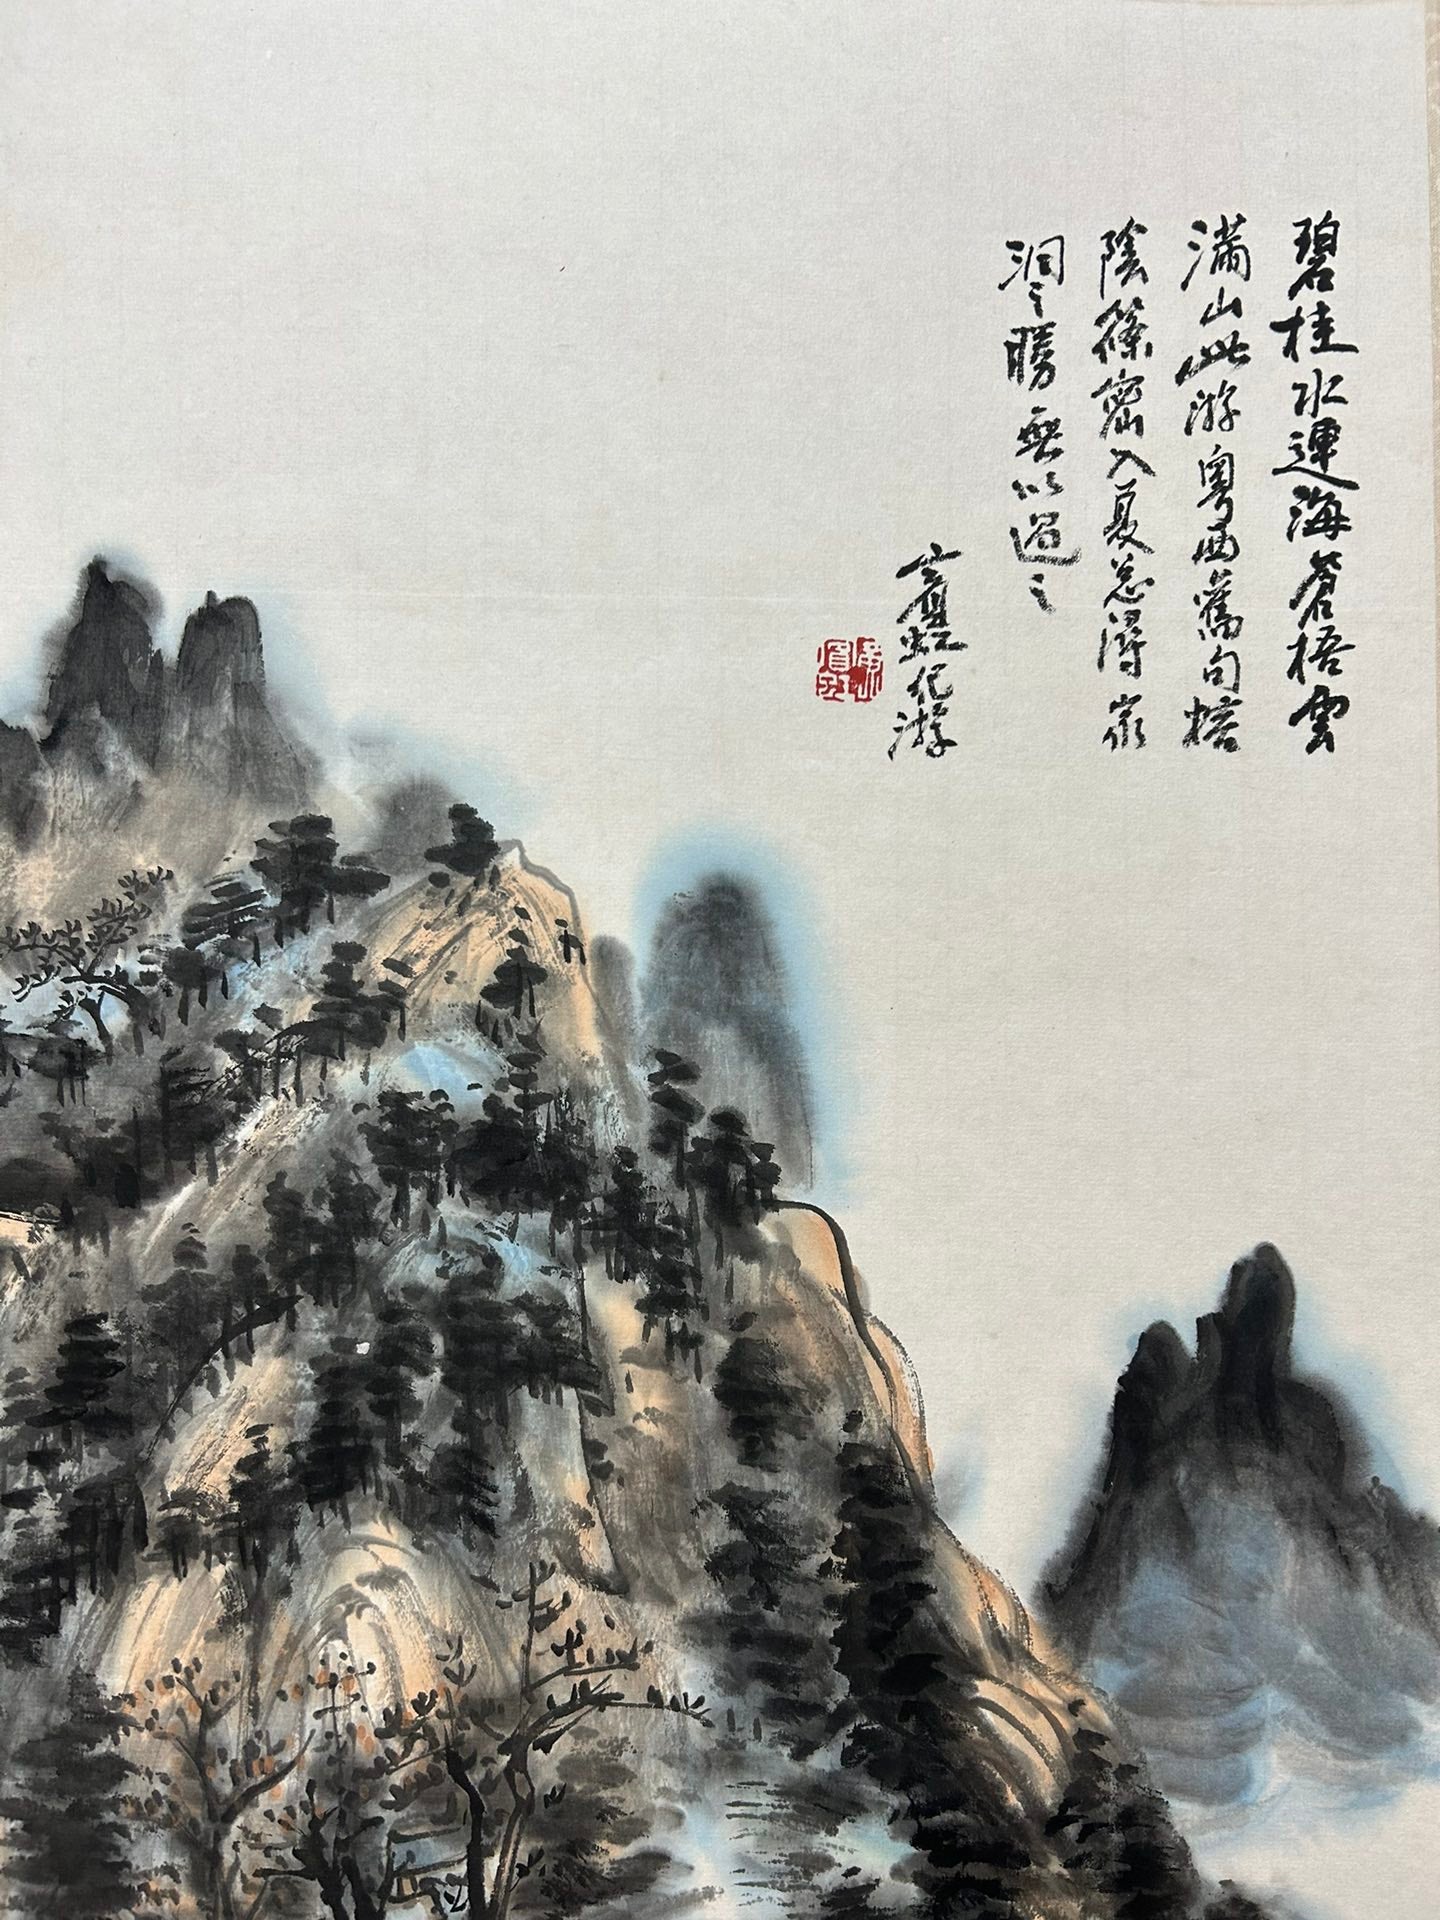 碧桂水連海蒼梧雲
滿山此游粵西舊句榕
陰篠密入夏忘溽泉
洞之勝無以過之
賓虹紀游